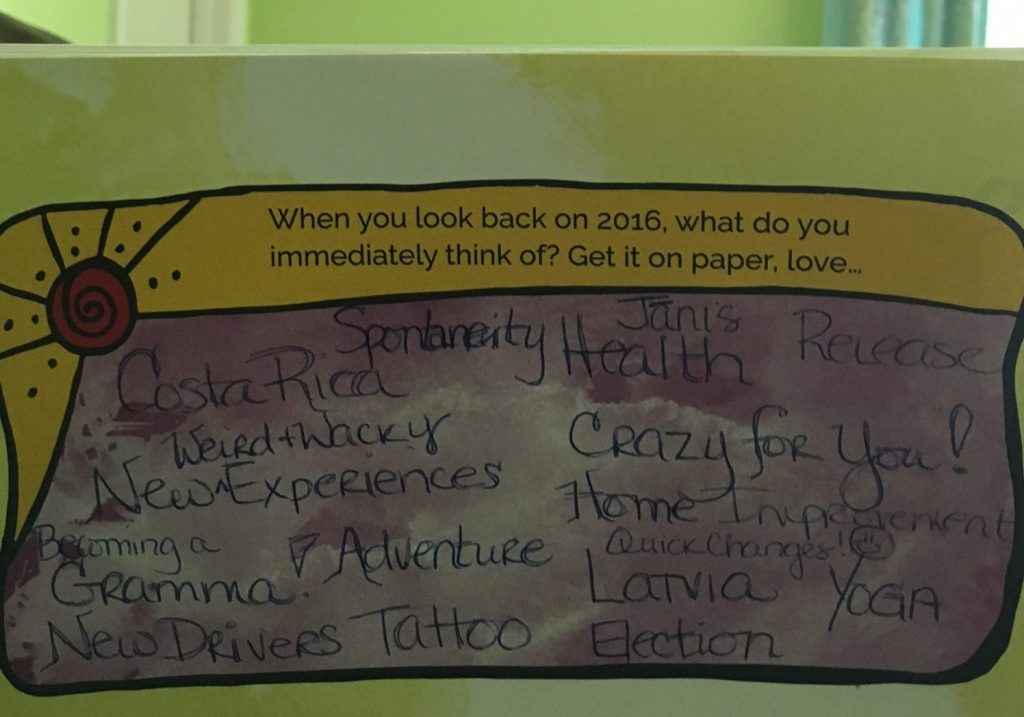 When you look back on 2016, what do you
immediately think of? Get it on paper, love...
Spontaneity
Janis
Health
Release
Costa Rica
Weird + Wacky
New ^ Experiences
Crazy for You!
Home Improvement
Becoming a
Gramma.
Adventure
Quick Changes!
Latvia
YOGA
New Drivers
Tattoo
Election